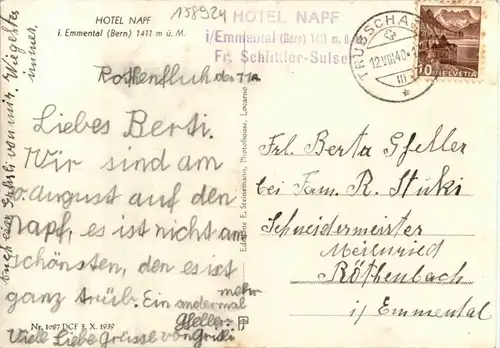 HOTEL NAPF
i. Emmental (Bern) 1411 m ü. M.
158924
HOTEL NAPF
i/Emmental (Bern) 1411 m. ü.
Fr. Schlittler-Sulser
TRUBSCHA
12.VIII.40.
III
10 HELVETIA
Rothenfluh den 11A
Liebes Berti.
Wir sind am
0. august auf den
Napf, es ist nicht am
schönsten, den es ist
ganz trüb. Ein andermal
mehr
Viele Liebe Grüsse von
Gfellers
immer.
Frl. Berta Gfeller
bei Fam. R. Stuki
Schneidermeister
Meienried
Röthenbach
i/ Emmental
Edition E. Steinemann, Photohouse, Locarno
Nr. 1087 DCF 3. X. 1939